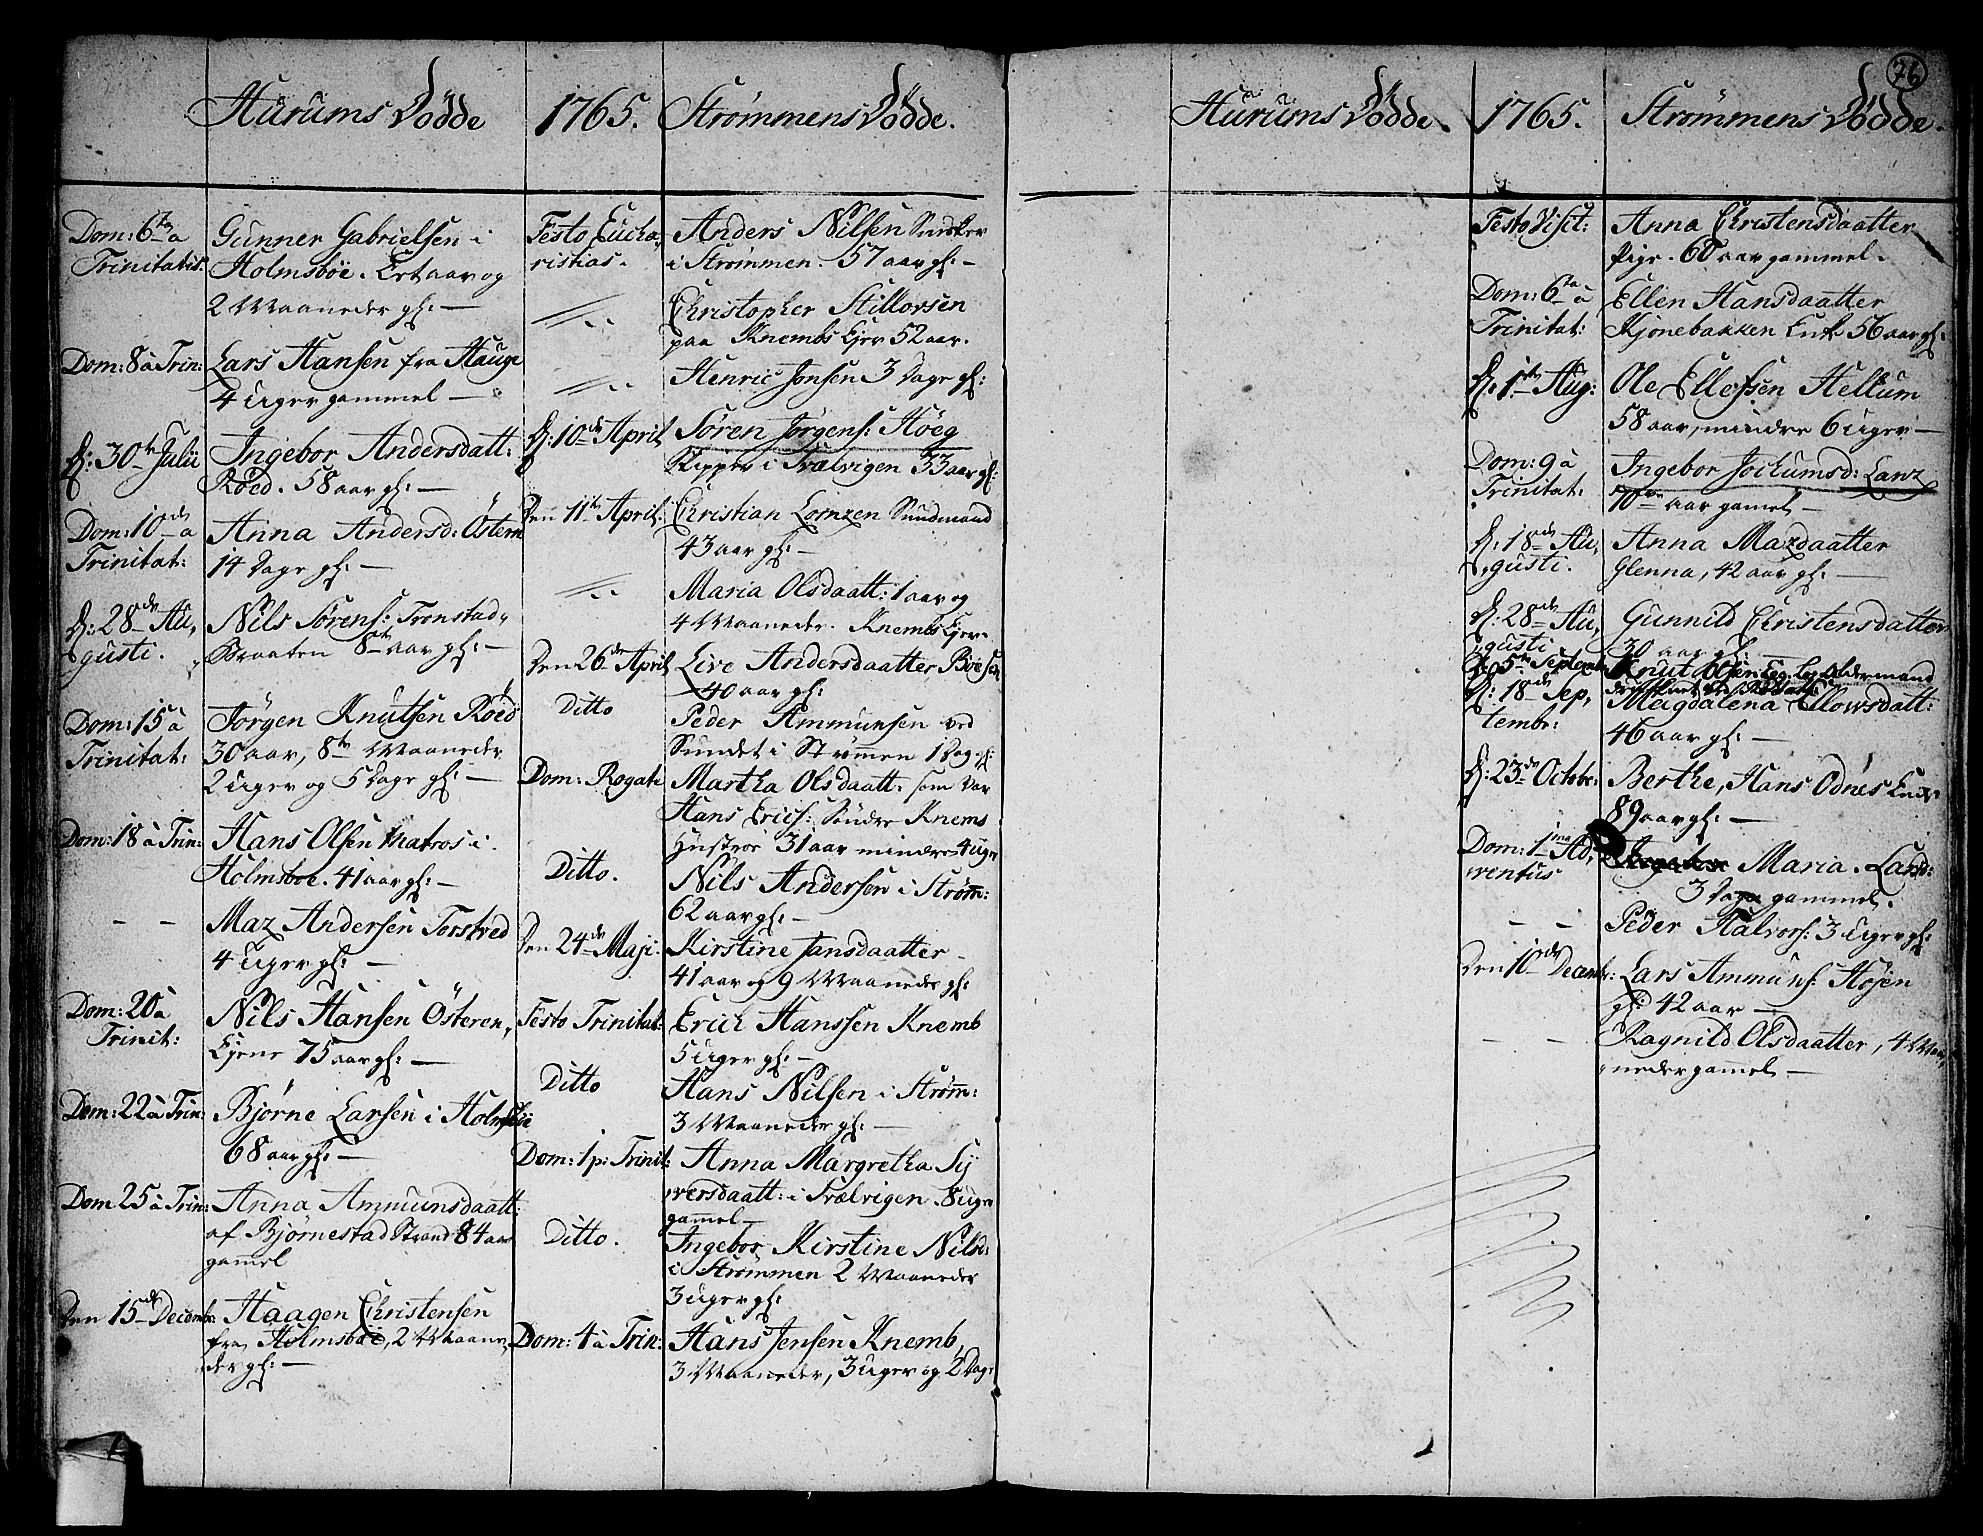 Hurums Dödde
Dom: 6ta à
Trinitatis.
Gunner Gabrielsen i
Holmsböe. Et aar og
2 Maaneder gl: —
Dom: 8 à Trin:
Lars Hansen fra Hauge
4 Uger gammel —
D: 30te Julii
Ingebor Andersdatt:
Röed. 58 aar gl: —
Dom: 10de à
Trinitat:
Anna Andersd: Östern
14 Dage gl: —
D: 28de Au,
gusti.
Nils Sörens: Tronstad,,
Braaten 8te aar gl: —
Dom: 15 à
Trinitat:
Jörgen Knutsen Röed
30 aar, 8te Maaneder
2 Uger og 5 Dage gl: —
Dom: 18 à Trin:
Hans Olsen Matros i
Holmsboe. 41 aar gl: —
– –
Maz Andersen Torstved
4 Uger gl: —
Dom: 20 à
Trinit:
Nils Hansen Österen,
Ejene 75 aar gl: —
Dom: 22 à Trin:
Bjørne Larsen i Holmsböe
68 aar gl: —
Dom 25 à Trin:
Anna Ammunsdaatt:
af Bjørnestad Strand 84 aar
gamel
Den 15de Decembr
Haagen Christensen
fra Holmsboe, 2 Maane
der gl: —
1765. Strømmens Dödde.
Festo Eucha,
ristias.
Anders Nilsen Snedker
i Strømmen. 57 aar gl: —
Christopher Stillorsen
paa Knembs Ejer 52 aar.
Henric Jonsen 3 Dage gl:
D: 10de April
Sören Jörgens: Höeg
Skipper i Trælvigen 33 aar gl:
Den 11te April:
Christian Lornzen Sundmand
43 aar gl: —
Maria Olsdaatt: 1 aar og
4 Maaneder. Knembs Ejer.
Den 26de April
Live Andersdaatter Böesen
40 aar gl:
Ditto
Peder Ammunsen ved
Sundet i Strømen 1 Dag gl:
Dom: Rogate
Martha Olsdaatt: som var
Hans Erics: Söndre Knems
Hustroe 31 aar mindre 4 Uger
Ditto.
Nils Andersen i Strøm:
62 aar gl: —
Den 24de Maji:
Kirstine Jansdaatter
41 aar og 9 Maaneder gl:
Festo Trinitat:
Erich Hanssen Knemb
5 Uger gl: —
Ditto
Hans Nilsen i Strøm:
3 Maaneder gl: —
Dom: 1 p: Trinit:
Anna Margretha Sy
versdaatt: i Trælvigen 8 Uger
gammel —
Ditto.
Ingebor Kirstine Nilsd:
i Strømmen 2 Maaneder
3 Uger gl:
Dom: 4 à Trin:
Hans Jensen Knemb,
3 Maaneder, 3 Uger og 2 Dag:
76
Hurums Dödde. 1765. Strømmens Dödde.
Festo Visit:
Anna Christensdaatter
Pige. 60 aar gammel.
Dom: 6ta à
Trinitat:
Ellen Hansdaatter
Kjønebakken Enke 56 aar gl:
D: 1te Aug:
Ole Ellefsen Hellum
58 aar, mindre 6 Uger —
Dom: 9 à
Trinitat:
Ingebor Jochumsd: Lanz
aar gamel —
D: 18de Au,
gusti.
Anna Mazdaatter
Glenna, 42 aar gl: —
D: 28de Au,
gusti
Gunnild Christensdatter
30 aar gl: —
D: 5te Septembr
Knut
D: 18de Sep,
tembr:
Magdalena Ellowsdatt:
46 aar gl: —
D: 23de Octobr:
Berthe, Hans Odnes Enke
89 aar gl: —
Dom: 1ma Ad,
ventus
Maria Larsd:
3 Dage gammel.
– –
Peder Halvors: 3 Uger gl:
Den 10de Decembr:
Lars Ammuns: Höjen
gl: 42 aar —
– –
Ragnild Olsdaatter, 4 Maa,
neder gamel —